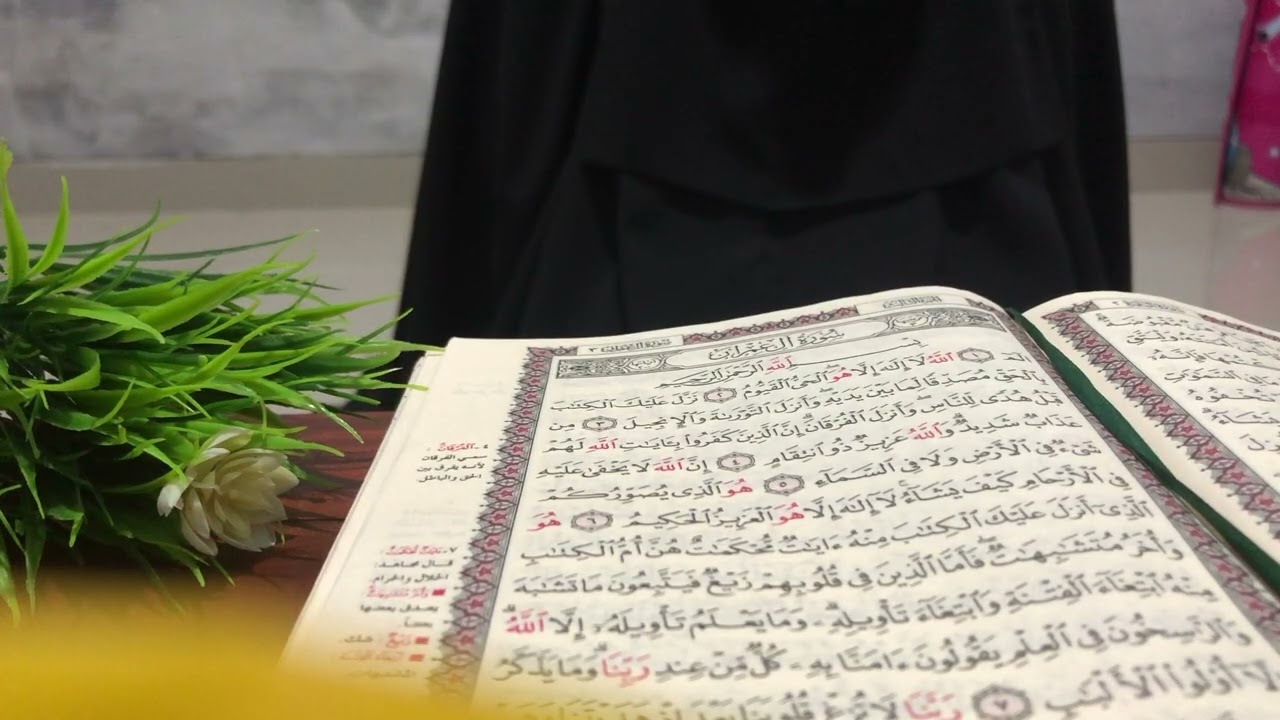 سُورَةُ آلِ عِمْرَانَ
بِسْمِ اللَّهِ الرَّحْمَٰنِ الرَّحِيمِ
الٓمٓ ١ ٱللَّهُ لَآ إِلَٰهَ إِلَّا هُوَ ٱلْحَىُّ ٱلْقَيُّومُ ٢ نَزَّلَ عَلَيْكَ ٱلْكِتَٰبَ
بِٱلْحَقِّ مُصَدِّقًا لِّمَا بَيْنَ يَدَيْهِ وَأَنزَلَ ٱلتَّوْرَىٰةَ وَٱلْإِنجِيلَ ٣ مِن
قَبْلُ هُدًى لِّلنَّاسِ وَأَنزَلَ ٱلْفُرْقَانَ إِنَّ ٱلَّذِينَ كَفَرُوا۟ بِـَٔايَٰتِ ٱللَّهِ لَهُمْ
عَذَابٌ شَدِيدٌ وَٱللَّهُ عَزِيزٌ ذُو ٱنتِقَامٍ ٤ إِنَّ ٱللَّهَ لَا يَخْفَىٰ عَلَيْهِ
شَىْءٌ فِى ٱلْأَرْضِ وَلَا فِى ٱلسَّمَآءِ ٥ هُوَ ٱلَّذِى يُصَوِّرُكُمْ
فِى ٱلْأَرْحَامِ كَيْفَ يَشَآءُ لَآ إِلَٰهَ إِلَّا هُوَ ٱلْعَزِيزُ ٱلْحَكِيمُ ٦ هُوَ
ٱلَّذِىٓ أَنزَلَ عَلَيْكَ ٱلْكِتَٰبَ مِنْهُ ءَايَٰتٌ مُّحْكَمَٰتٌ هُنَّ أُمُّ ٱلْكِتَٰبِ
وَأُخَرُ مُتَشَٰبِهَٰتٌ فَأَمَّا ٱلَّذِينَ فِى قُلُوبِهِمْ زَيْغٌ فَيَتَّبِعُونَ مَا تَشَٰبَهَ
مِنْهُ ٱبْتِغَآءَ ٱلْفِتْنَةِ وَٱبْتِغَآءَ تَأْوِيلِهِۦ وَمَا يَعْلَمُ تَأْوِيلَهُۥٓ إِلَّا ٱللَّهُ
وَٱلرَّٰسِخُونَ فِى ٱلْعِلْمِ يَقُولُونَ ءَامَنَّا بِهِۦ كُلٌّ مِّنْ عِندِ رَبِّنَا وَمَا يَذَّكَّرُ
إِلَّآ أُو۟لُوا۟ ٱلْأَلْبَٰبِ ٧ رَبَّنَا لَا تُزِغْ قُلُوبَنَا بَعْدَ إِذْ هَدَيْتَنَا
٤-الفرقان:
سمي الفرقان
لأنه يفرق بين
الحق والباطل
قال مجاهد:
الحلال والحرام
يصدق بعضها
بعضا
زيغ: شك